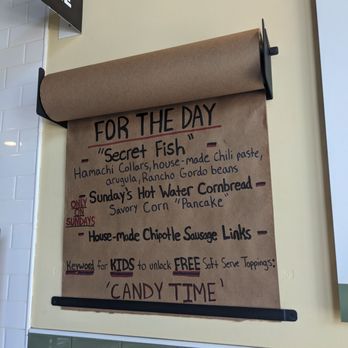 FOR THE DAY
- "Secret Fish" -
Hamachi Collars, house-made Chili paste,
arugula, Rancho Gordo beans
- Sunday's Hot Water Cornbread -
Savory Corn "Pancake"
ONLY
ON
SUNDAYS
- House-made Chipotle Sausage Links -
Keyword for KIDS to unlock FREE Soft Serve Toppings:
'CANDY TIME'